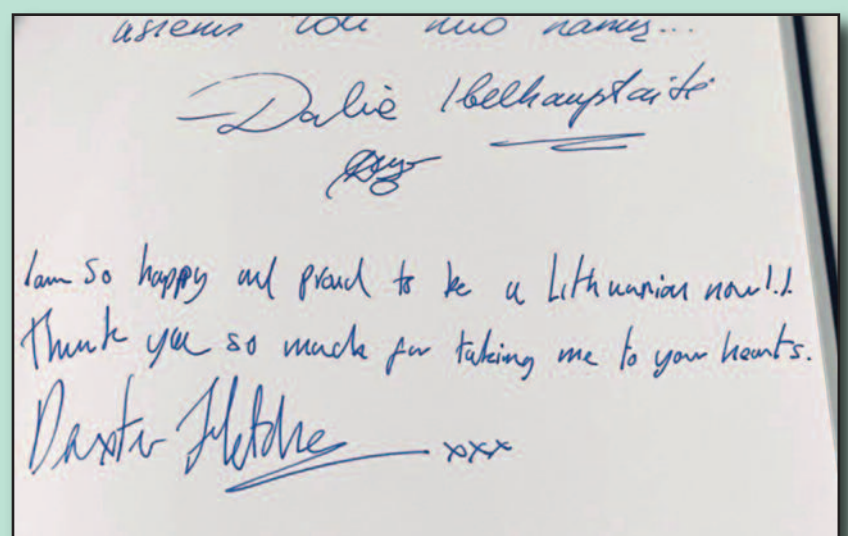 nuo namų...
Dalia Ibelhauptaitė
I am so happy and proud to be a Lithuanian now!!
Thank you so much for taking me to your hearts.
Dexter Fletcher xxx